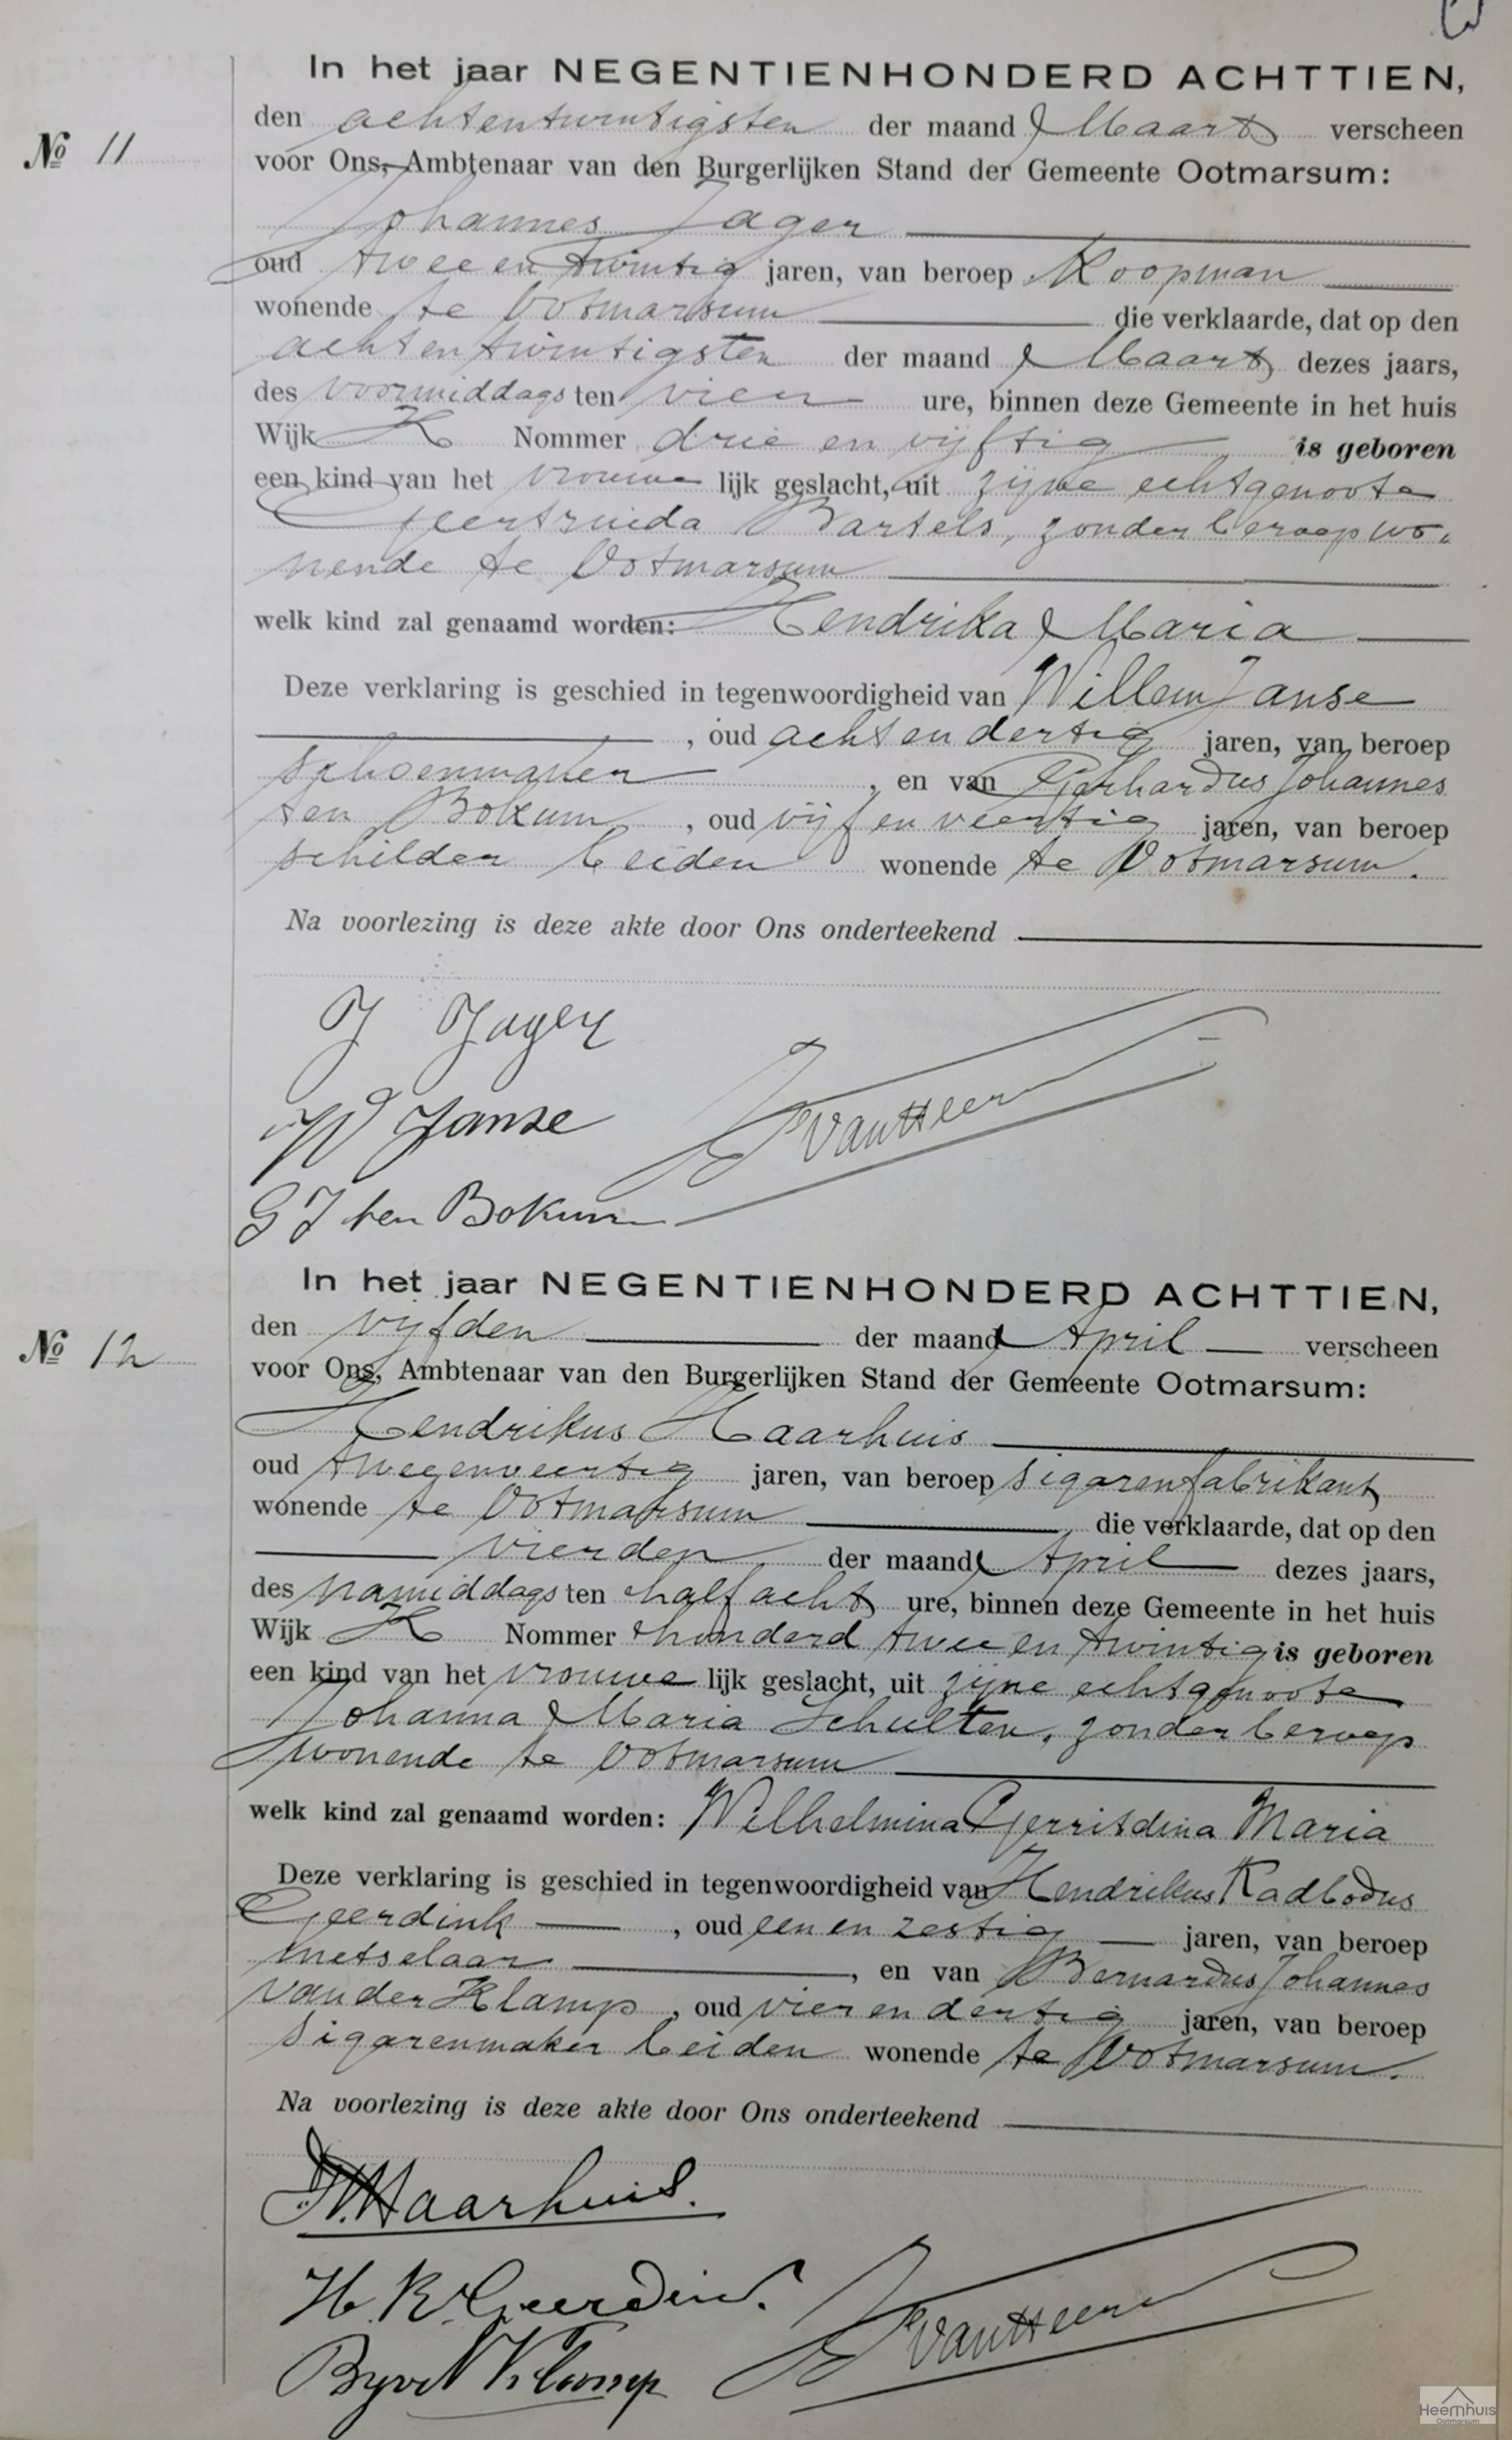 In het jaar NEGENTIENHONDERD ACHTTIEN,
den achtentwintigsten der maand Maart verscheen
No 11
voor Ons, Ambtenaar van den Burgerlijken Stand der Gemeente Ootmarsum:
Johannes Jager
oud twee en twintig jaren, van beroep Koopman
wonende te Ootmarsum die verklaarde, dat op den
achtentwintigsten der maand Maart dezes jaars,
des voormiddags ten vier ure, binnen deze Gemeente in het huis
Wijk K Nommer drie en vijftig is geboren
een kind van het vrouwe lijk geslacht, uit zijne echtgenoote
Geertruida Bartels, zonder beroep wo-
nende te Ootmarsum
welk kind zal genaamd worden: Hendrika Maria
Deze verklaring is geschied in tegenwoordigheid van Willem Janse
, oud acht en dertig jaren, van beroep
schoenmaker , en van Gerhardus Johannes
ten Bokum , oud vijf en veertig jaren, van beroep
schilder beiden wonende te Ootmarsum.
Na voorlezing is deze akte door Ons onderteekend
J Jager
W Janse
VantHeer
G J ten Bokum
In het jaar NEGENTIENHONDERD ACHTTIEN,
den vijfden der maand April verscheen
No 12
voor Ons, Ambtenaar van den Burgerlijken Stand der Gemeente Ootmarsum:
Hendrikus Haarhuis
oud tweeenveertig jaren, van beroep sigarenfabrikant
wonende te Ootmarsum die verklaarde, dat op den
vierden der maand April dezes jaars,
des namiddags ten half acht ure, binnen deze Gemeente in het huis
Wijk K Nommer honderd twee en twintig is geboren
een kind van het vrouwe lijk geslacht, uit zijne echtgenoote
Johanna Maria Schulten, zonder beroep
wonende te Ootmarsum
welk kind zal genaamd worden: Wilhelmina Gerritdina Maria
Deze verklaring is geschied in tegenwoordigheid van Hendrikus Radbodus
Geerdink , oud een en zestig jaren, van beroep
metselaar , en van Bernardus Johannes
van der Klamp , oud vier en dertig jaren, van beroep
sigarenmaker beiden wonende te Ootmarsum.
Na voorlezing is deze akte door Ons onderteekend
H. Haarhuis.
H. R. Geerdink
VantHeer
BJvd Klamp
Heemhuis
Ootmarsum